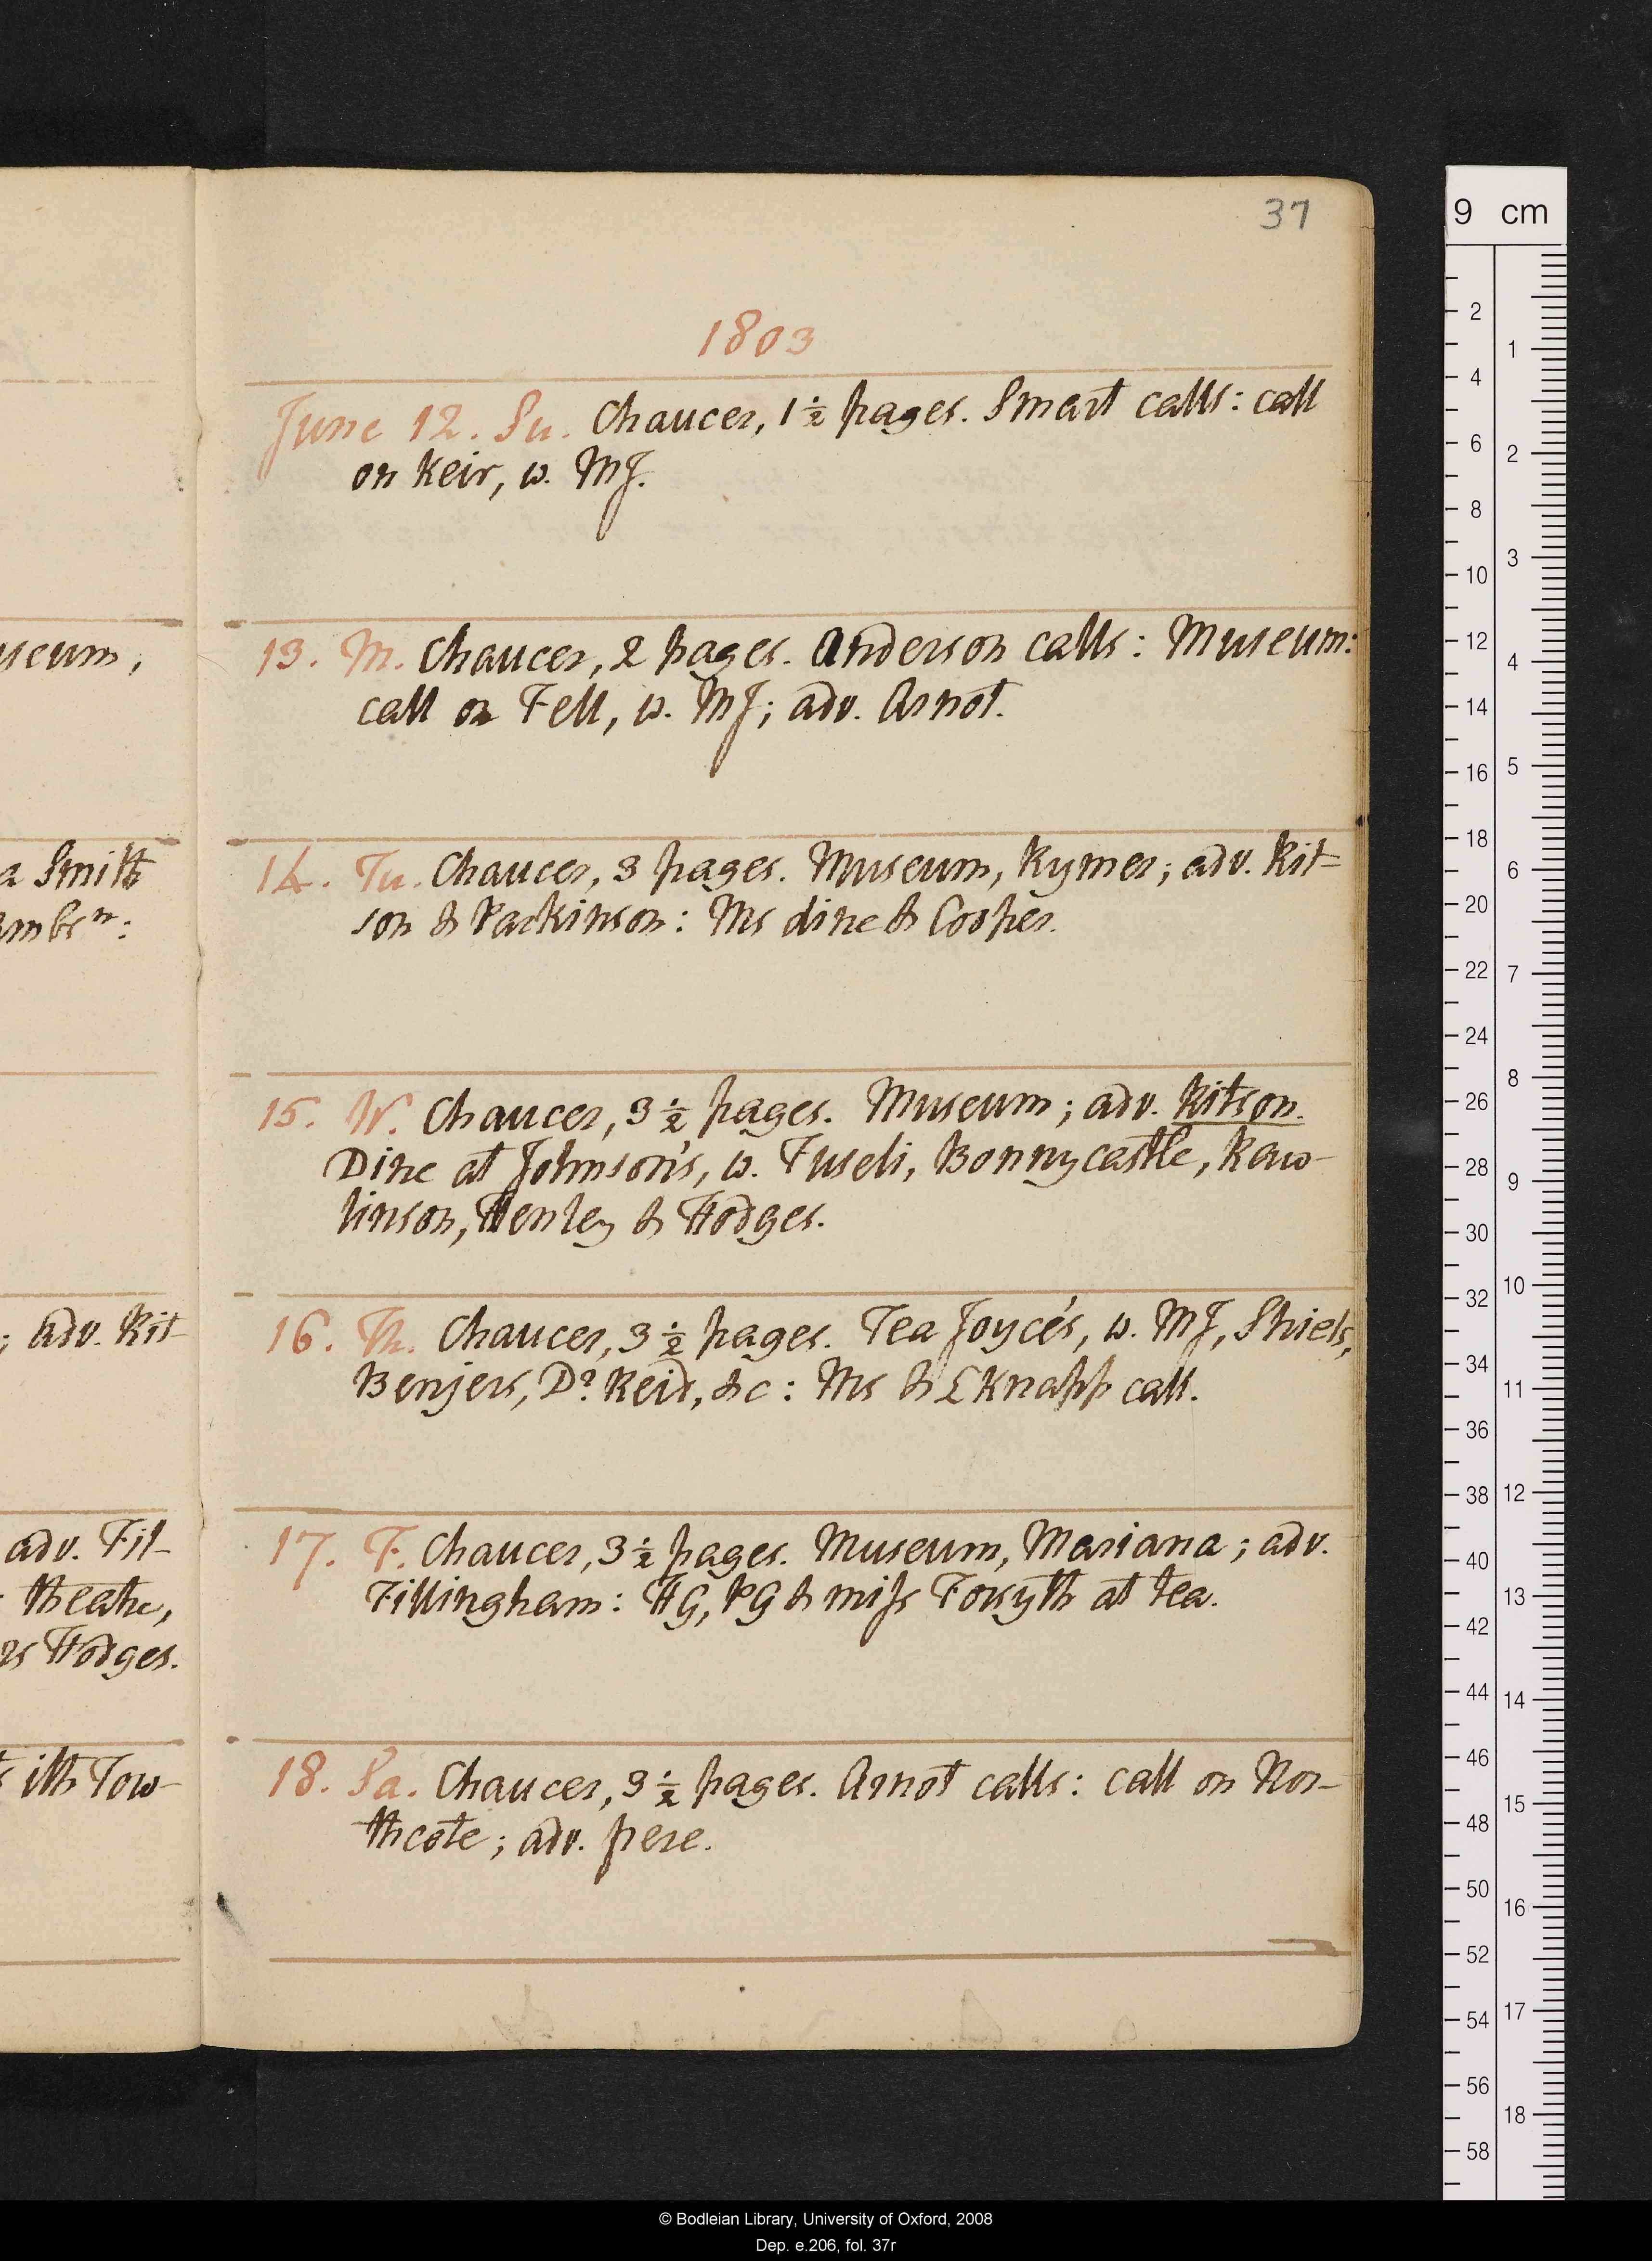 37
1803
June 12. Su. Chaucer, 1½ pages. Smart calls: call
on Keir, w. MJ.
useum;
13. M. Chaucer, 2 pages. Anderson calls: Museum:
call on Fell, w. MJ; adv. Arnot.
a Smith
ambrn:
14. Tu. Chaucer, 3 pages. Museum, Rymer; adv. Rit-
son & Parkinson: Ms dine & Cooper.
15. W. Chaucer, 3½ pages. Museum; adv. Ritson.
Dine at Johnson's, w. Fuseli, Bonnycastle, Raw-
linson, Henley & Hodges.
; adv. Rit-
16. Th. Chaucer, 3½ pages. Tea Joyce's, w. MJ, Shiels,
Bengers, Dr. Reid, &c: Ms & L Knapp call.
adv. Fil-
theatre,
rs Hodges.
17. F. Chaucer, 3½ pages. Museum, Mariana; adv.
Fillingham: HG, PG & miſs Forsyth at tea.
ith Tow-
18. Sa. Chaucer, 3½ pages. Arnot calls: call on Nor-
thcote; adv. pere.
9 cm
2
4
6
8
10
12
14
16
18
20
22
24
26
28
30
32
34
36
38
40
42
44
46
48
50
52
54
56
58
1
2
3
4
5
6
7
8
9
10
11
12
13
14
15
16
17
18
© Bodleian Library, University of Oxford, 2008
Dep. e.206, fol. 37r